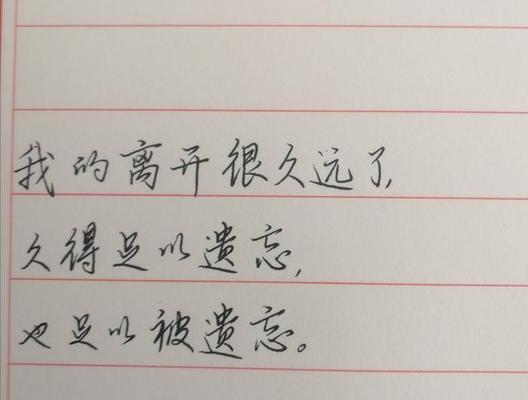 我的离开很久远了,
久得足以遗忘,
也足以被遗忘。